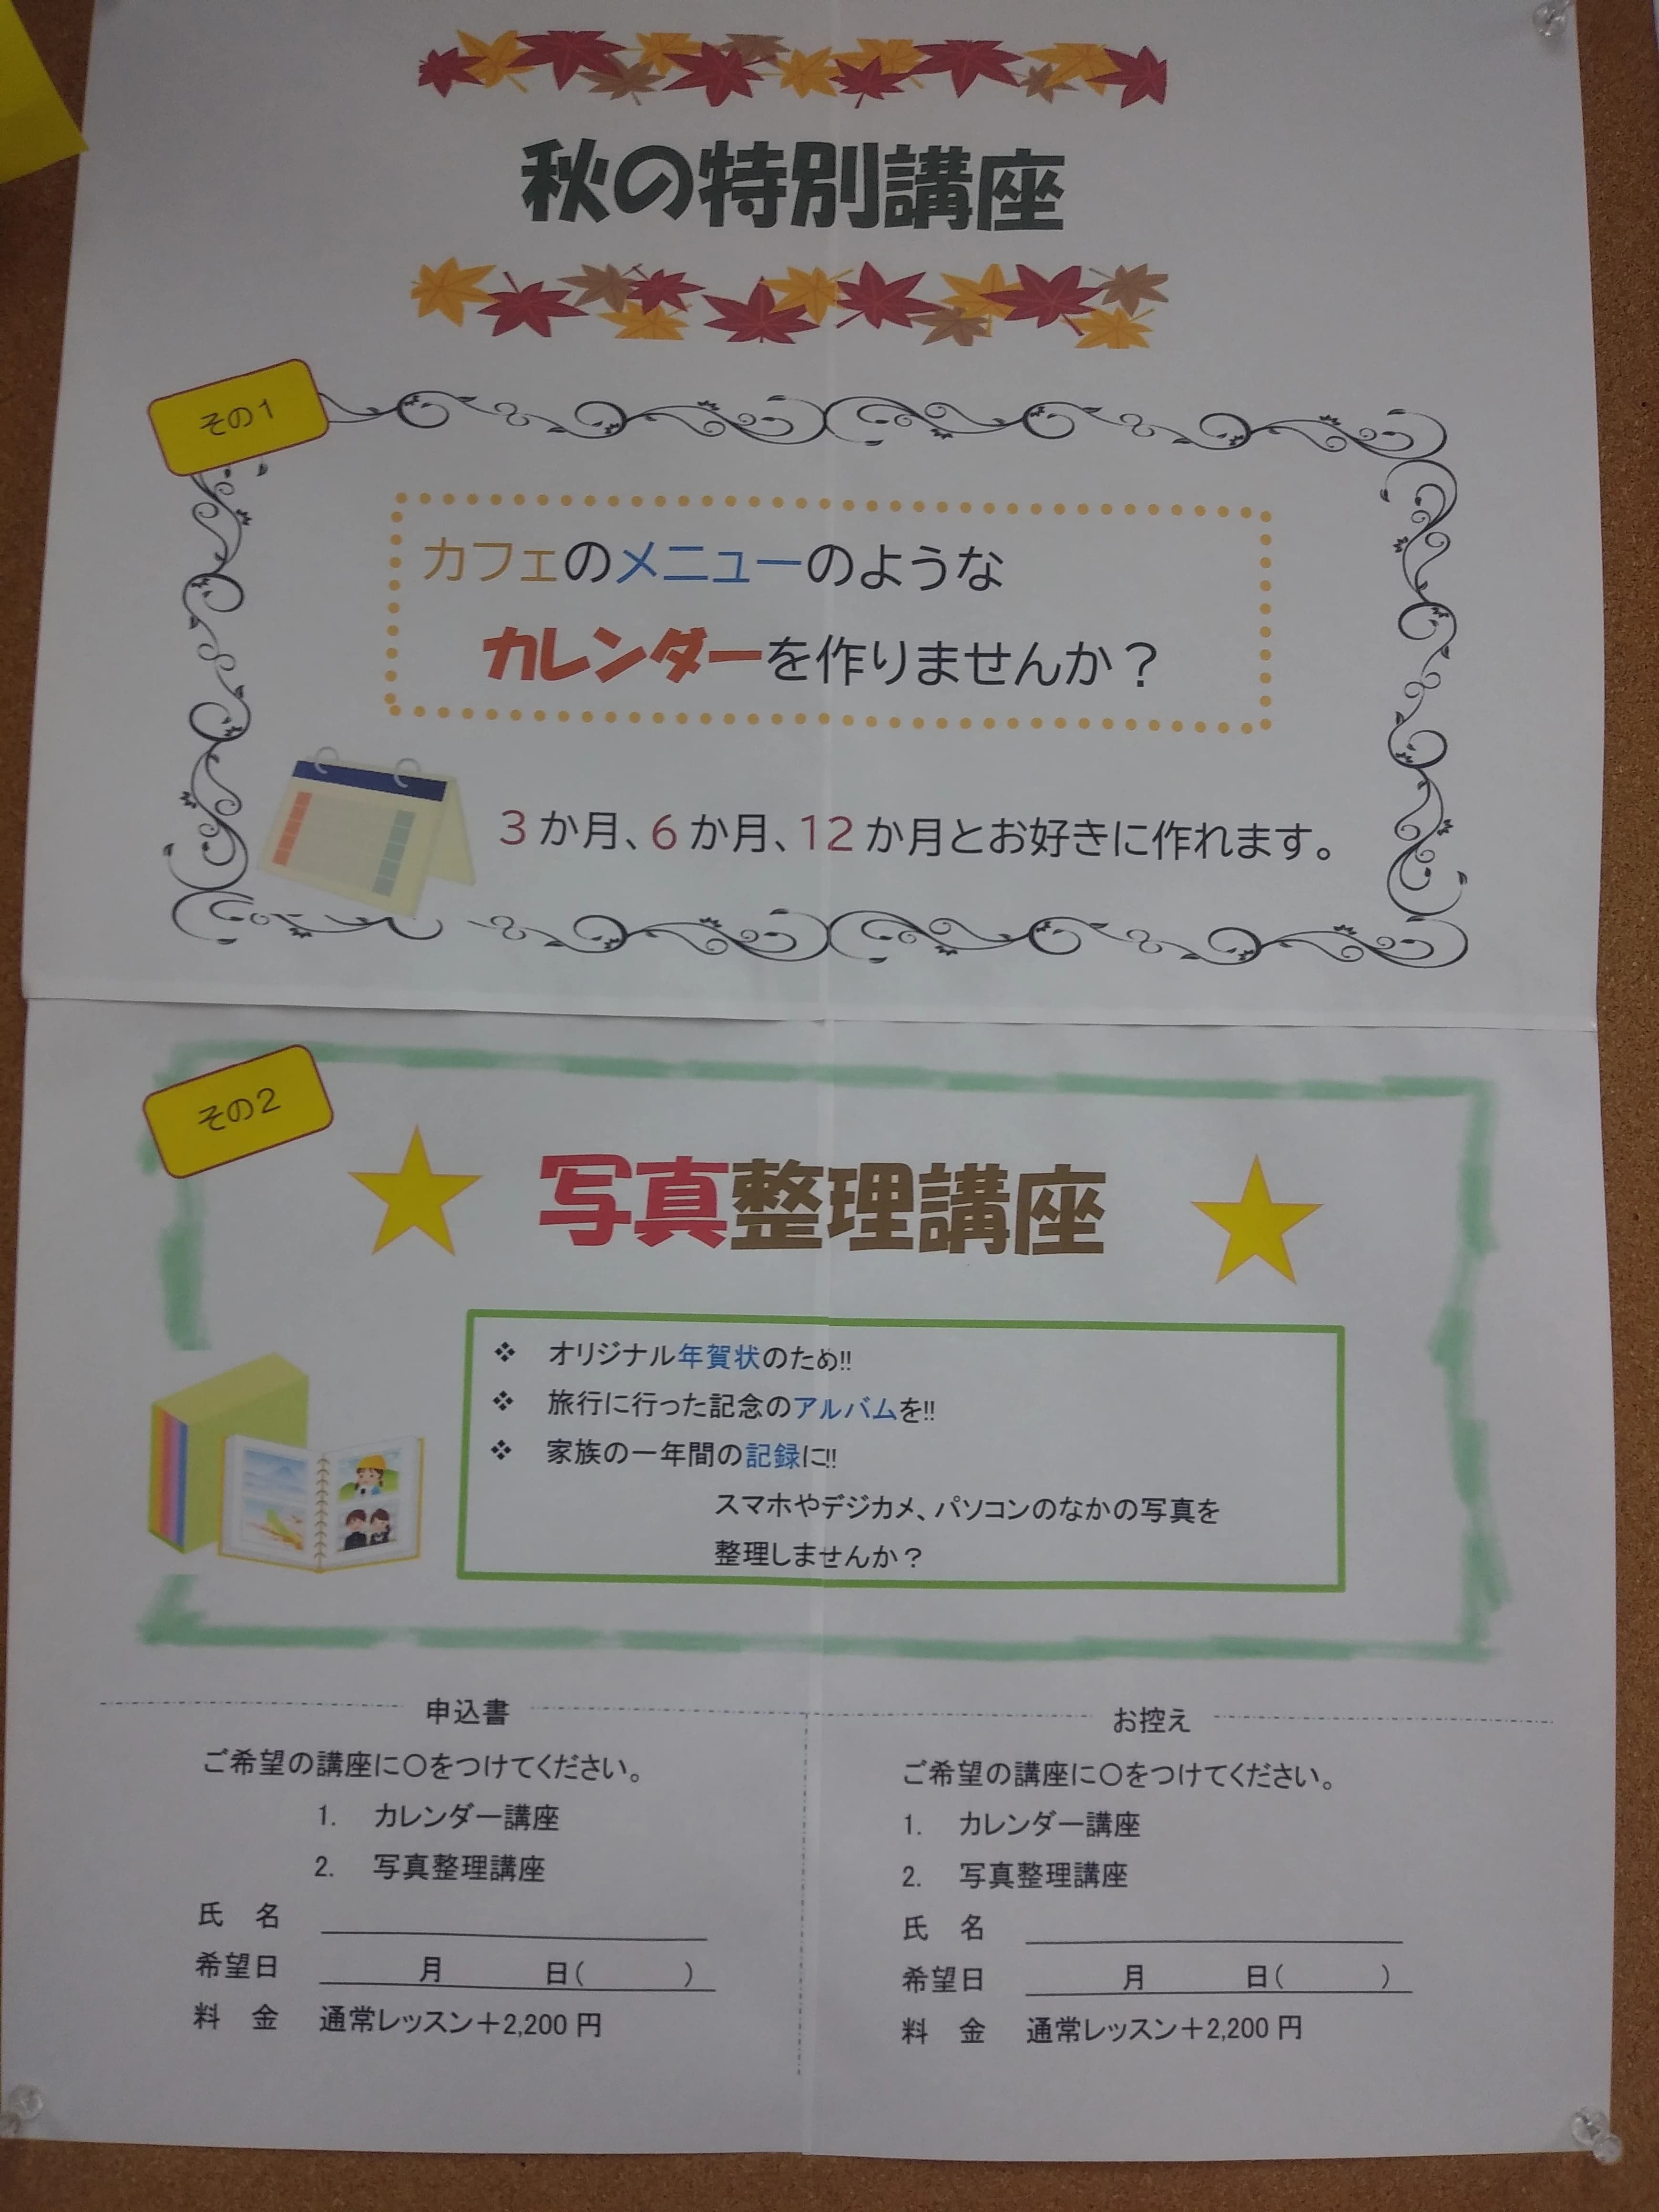 秋の特別講座
その1
カフェのメニューのような
カレンダーを作りませんか？
3か月、6か月、12か月とお好きに作れます。
その2
写真整理講座
❖ オリジナル年賀状のため!!
❖ 旅行に行った記念のアルバムを!!
❖ 家族の一年間の記録に!!
スマホやデジカメ、パソコンのなかの写真を
整理しませんか？
申込書
ご希望の講座に〇をつけてください。
1. カレンダー講座
2. 写真整理講座
氏 名
希望日 月 日( )
料 金 通常レッスン＋2,200円
お控え
ご希望の講座に〇をつけてください。
1. カレンダー講座
2. 写真整理講座
氏 名
希望日 月 日( )
料 金 通常レッスン＋2,200円